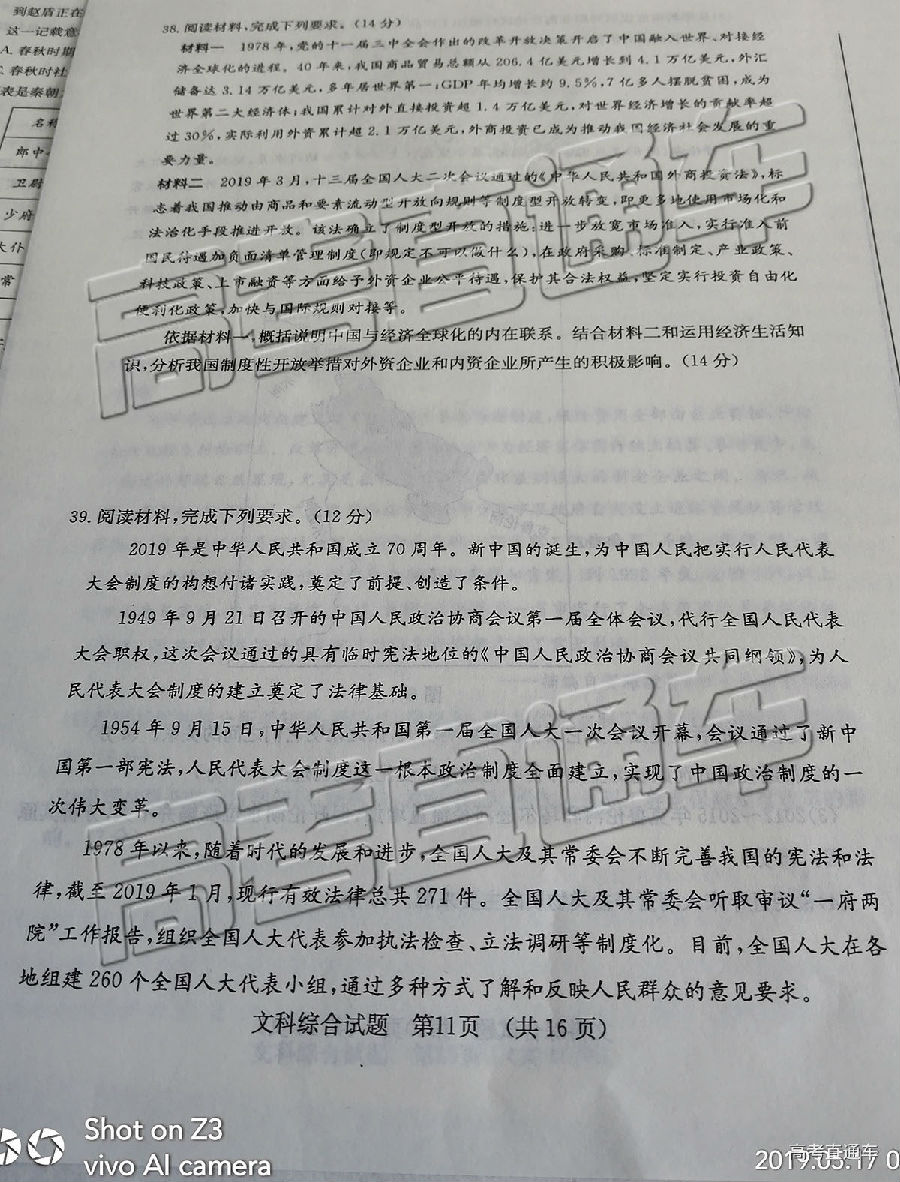 到赵盾正在
这一记载意
A. 春秋时期
C. 春秋时社
表是秦朝
名称
郎中
卫尉
少府
太仆
常
38. 阅读材料,完成下列要求。(14分)
材料一 1978年,党的十一届三中全会作出的改革开放决策开启了中国融入世界、对接经
济全球化的进程。40年来,我国商品贸易总额从206.4亿美元增长到4.1万亿美元,外汇
储备达3.14万亿美元,多年居世界第一;GDP年均增长约9.5%,7亿多人摆脱贫困,成为
世界第二大经济体;我国累计对外直接投资超1.4万亿美元,对世界经济增长的贡献率超
过30%,实际利用外资累计超2.1万亿美元,外商投资已成为推动我国经济社会发展的重
要力量。
材料二 2019年3月,十三届全国人大二次会议通过的《中华人民共和国外商投资法》,标
志着我国推动由商品和要素流动型开放向规则等制度型开放转变,即更多地使用市场化和
法治化手段推进开放。该法确立了制度型开放的措施:进一步放宽市场准入,实行准入前
国民待遇加负面清单管理制度(即规定不可以做什么),在政府采购、标准制定、产业政策、
科技政策、上市融资等方面给予外资企业公平待遇,保护其合法权益,坚定实行投资自由化
便利化政策,加快与国际规则对接等。
依据材料一,概括说明中国与经济全球化的内在联系。结合材料二和运用经济生活知
识,分析我国制度性开放举措对外资企业和内资企业所产生的积极影响。(14分)
39. 阅读材料,完成下列要求。(12分)
2019年是中华人民共和国成立70周年。新中国的诞生,为中国人民把实行人民代表
大会制度的构想付诸实践,奠定了前提、创造了条件。
1949年9月21日召开的中国人民政治协商会议第一届全体会议,代行全国人民代表
大会职权,这次会议通过的具有临时宪法地位的《中国人民政治协商会议共同纲领》,为人
民代表大会制度的建立奠定了法律基础。
1954年9月15日,中华人民共和国第一届全国人大一次会议开幕,会议通过了新中
国第一部宪法,人民代表大会制度这一根本政治制度全面建立,实现了中国政治制度的一
次伟大变革。
1978年以来,随着时代的发展和进步,全国人大及其常委会不断完善我国的宪法和法
律,截至2019年1月,现行有效法律总共271件。全国人大及其常委会听取审议“一府两
院”工作报告,组织全国人大代表参加执法检查、立法调研等制度化。目前,全国人大在各
地组建260个全国人大代表小组,通过多种方式了解和反映人民群众的意见要求。
文科综合试题 第11页 (共16页)
高考直通车
高考直通车
Shot on Z3
vivo AI camera
高考直通车
2019.05.17 0